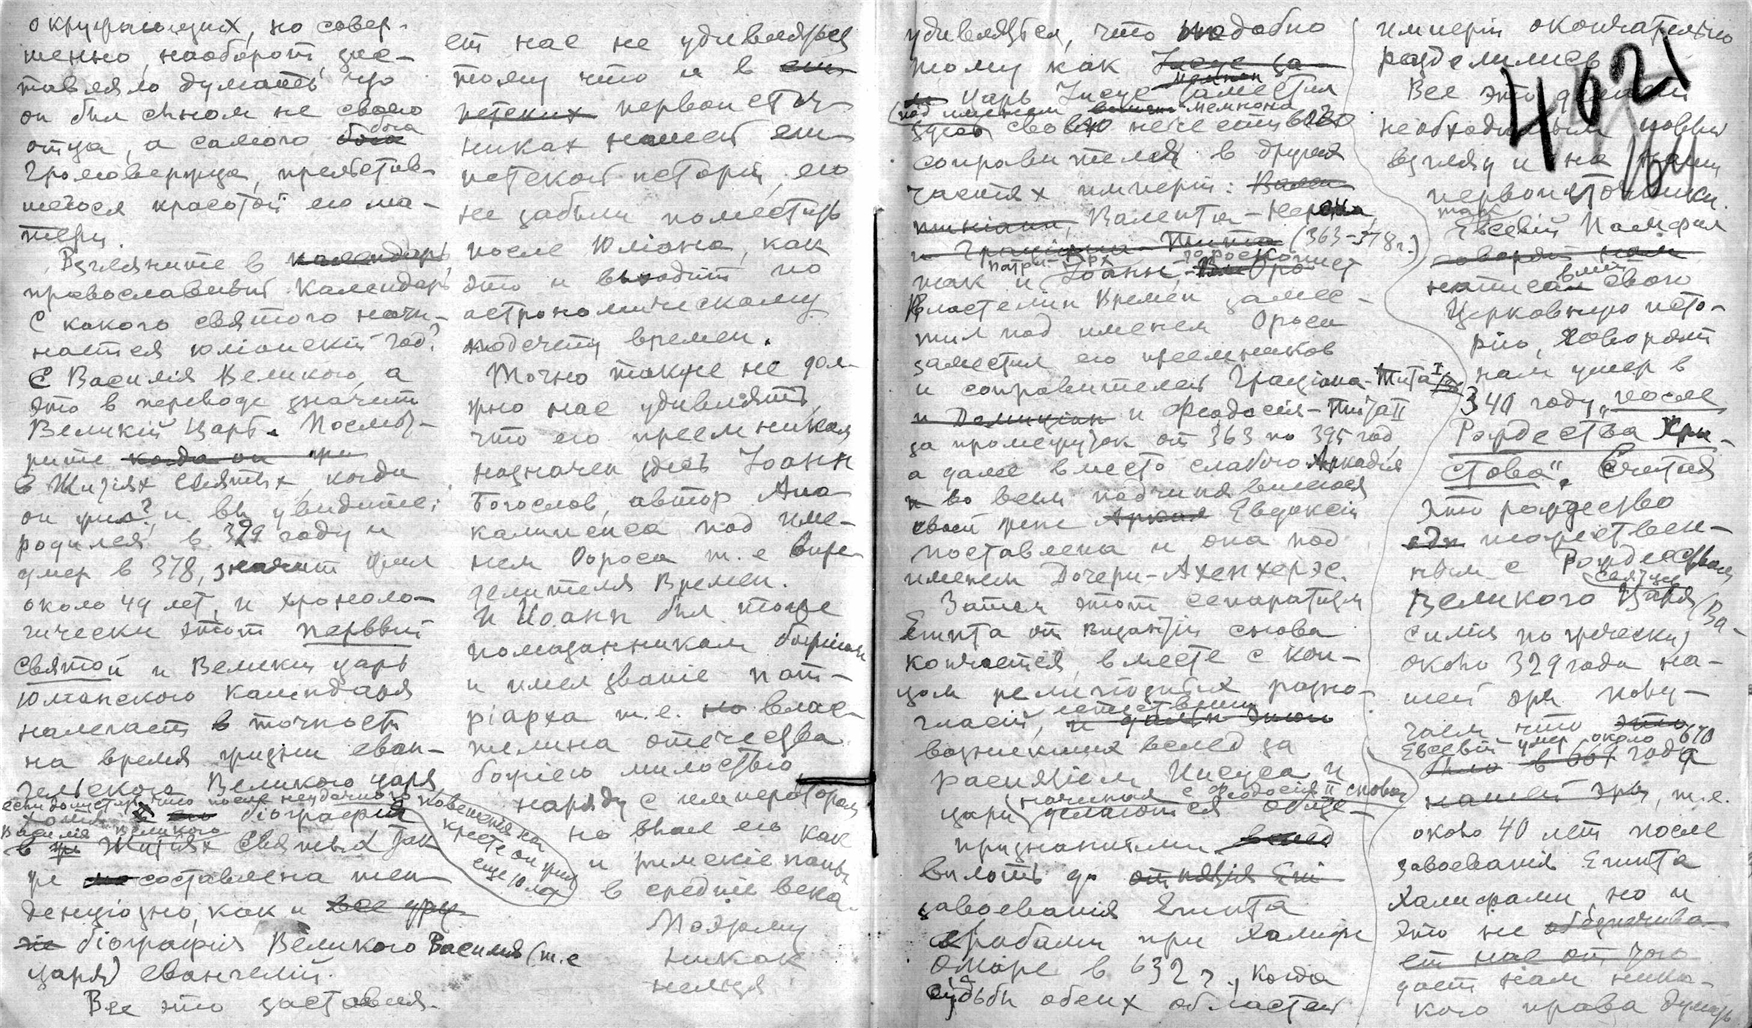 окружающих, но совер-
шенно, наоборот, зас-
тавляло думать что
он был сыном не своего
отца, а самого бога
Громовержца, прельстив-
шегося красотой его ма-
тери.
Взгляните в календарь
православный Календарь
С какого святого начи-
нается юліанскій год?
С Василія Великого, а
это в переводе значит
Великій Царь. Посмот-
рите когда он жи
в Житіях Святых когда
он жил? и вы увидите:
родился в 329 году и
умер в 378, значит жил
около 49 лет, и хроноло-
гически этот первый
святой и Великій царь
юліанского календаря
налегает в точности
на время жизни еван-
гельского Великого царя
если допустить, что после неудачного
біографія
Василія Великого
в Житіях Святых так
же составлена тен-
денціозно, как и все дру-
гіе біографія Великого Василія (т.е
царя) евангелій.
Все это заставля-
повешенія на
кресте он жил
еще 10 лет
ет нас не удивляться
тому что и в еги-
петских первоисточ-
никах нашей еги-
петской исторіи, его
не забыли поместить
после Юліана, как
это и выходит по
астрономическому
подсчету времен.
Точно также не дол-
жно нас удивлять,
что его преемником
назначен здесь Іоанн
Богослов, автор Апо-
калипсиса под име-
нем Ороса т. е опре-
делителя Времен.
И Иоанн был тоже
помазанником божіим
и имел званіе пат-
ріарха т.е. но влас-
телина отечества
божіею милостью
наряду с императором
но выше его как
и римскіе папы
в средніе века.
Поэтому
никак
нельзя
удивляться, что подобно
тому как Іисус за-
Царь Іисус заместил
под именем Мемнона
здесь свою нечестивого
соправителя в других
частях имперіи: Вален-
тиніана, Валента-Нерона
и Граціана-Тита (363-378 г.)
патріарх гороскопист
так и Іоанн, Оро
Властелин Времен замес-
тил под именем Ороса
заместил его преемников
и соправителей Граціана-Тита I
и Домиціан и Феодосія-Тита II
за промежуток от 363 по 395 год
а далее вместо слабого Аркадія
и во всем подчинявшегося
своей жене Аркад Евдоксіи
поставлена и она под
именем Дочери-Ахенхерэс.
Затем этот сепаратизм
Египта от Византіи снова
кончается, вместе с кон-
цом религіозных разно-
гласій,
возникших вслед за
распятіем Иисуса и
цари начиная с Феодосія II снова
делаются обще-
признанными
вплоть до
завоеванія Египта
арабами при халифе
Омаре в 632 г., когда
судьбы обеих областей
имперіи окончательно
разделились
4021
164
Все это делает
необходимым новый
взгляд и на наши
первоисточники.
так
Евсевій Памфил
говорят нам
написавший свою
Церковную исто-
рію, говорят
нам умер в
340 году, „после
Рождества Хри-
стова“. Считая
это рождество
тожествен-
ным с Рождеством
святого
Великого Царя (Ва-
силія по гречески)
около 329 года на-
шей эры полу-
чаем что
Евсевій умер около 670
было в 661 года
нашей эры, т.е.
около 40 лет после
завоеванія Египта
халифами, но и
это не обезпечива-
ет нас от того
дает нам ника-
кого права думать